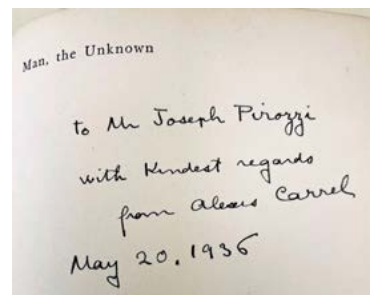 Man, the Unknown
to Mr Joseph Pirozzi
with Kindest regards
from Alexis Carrel
May 20. 1936